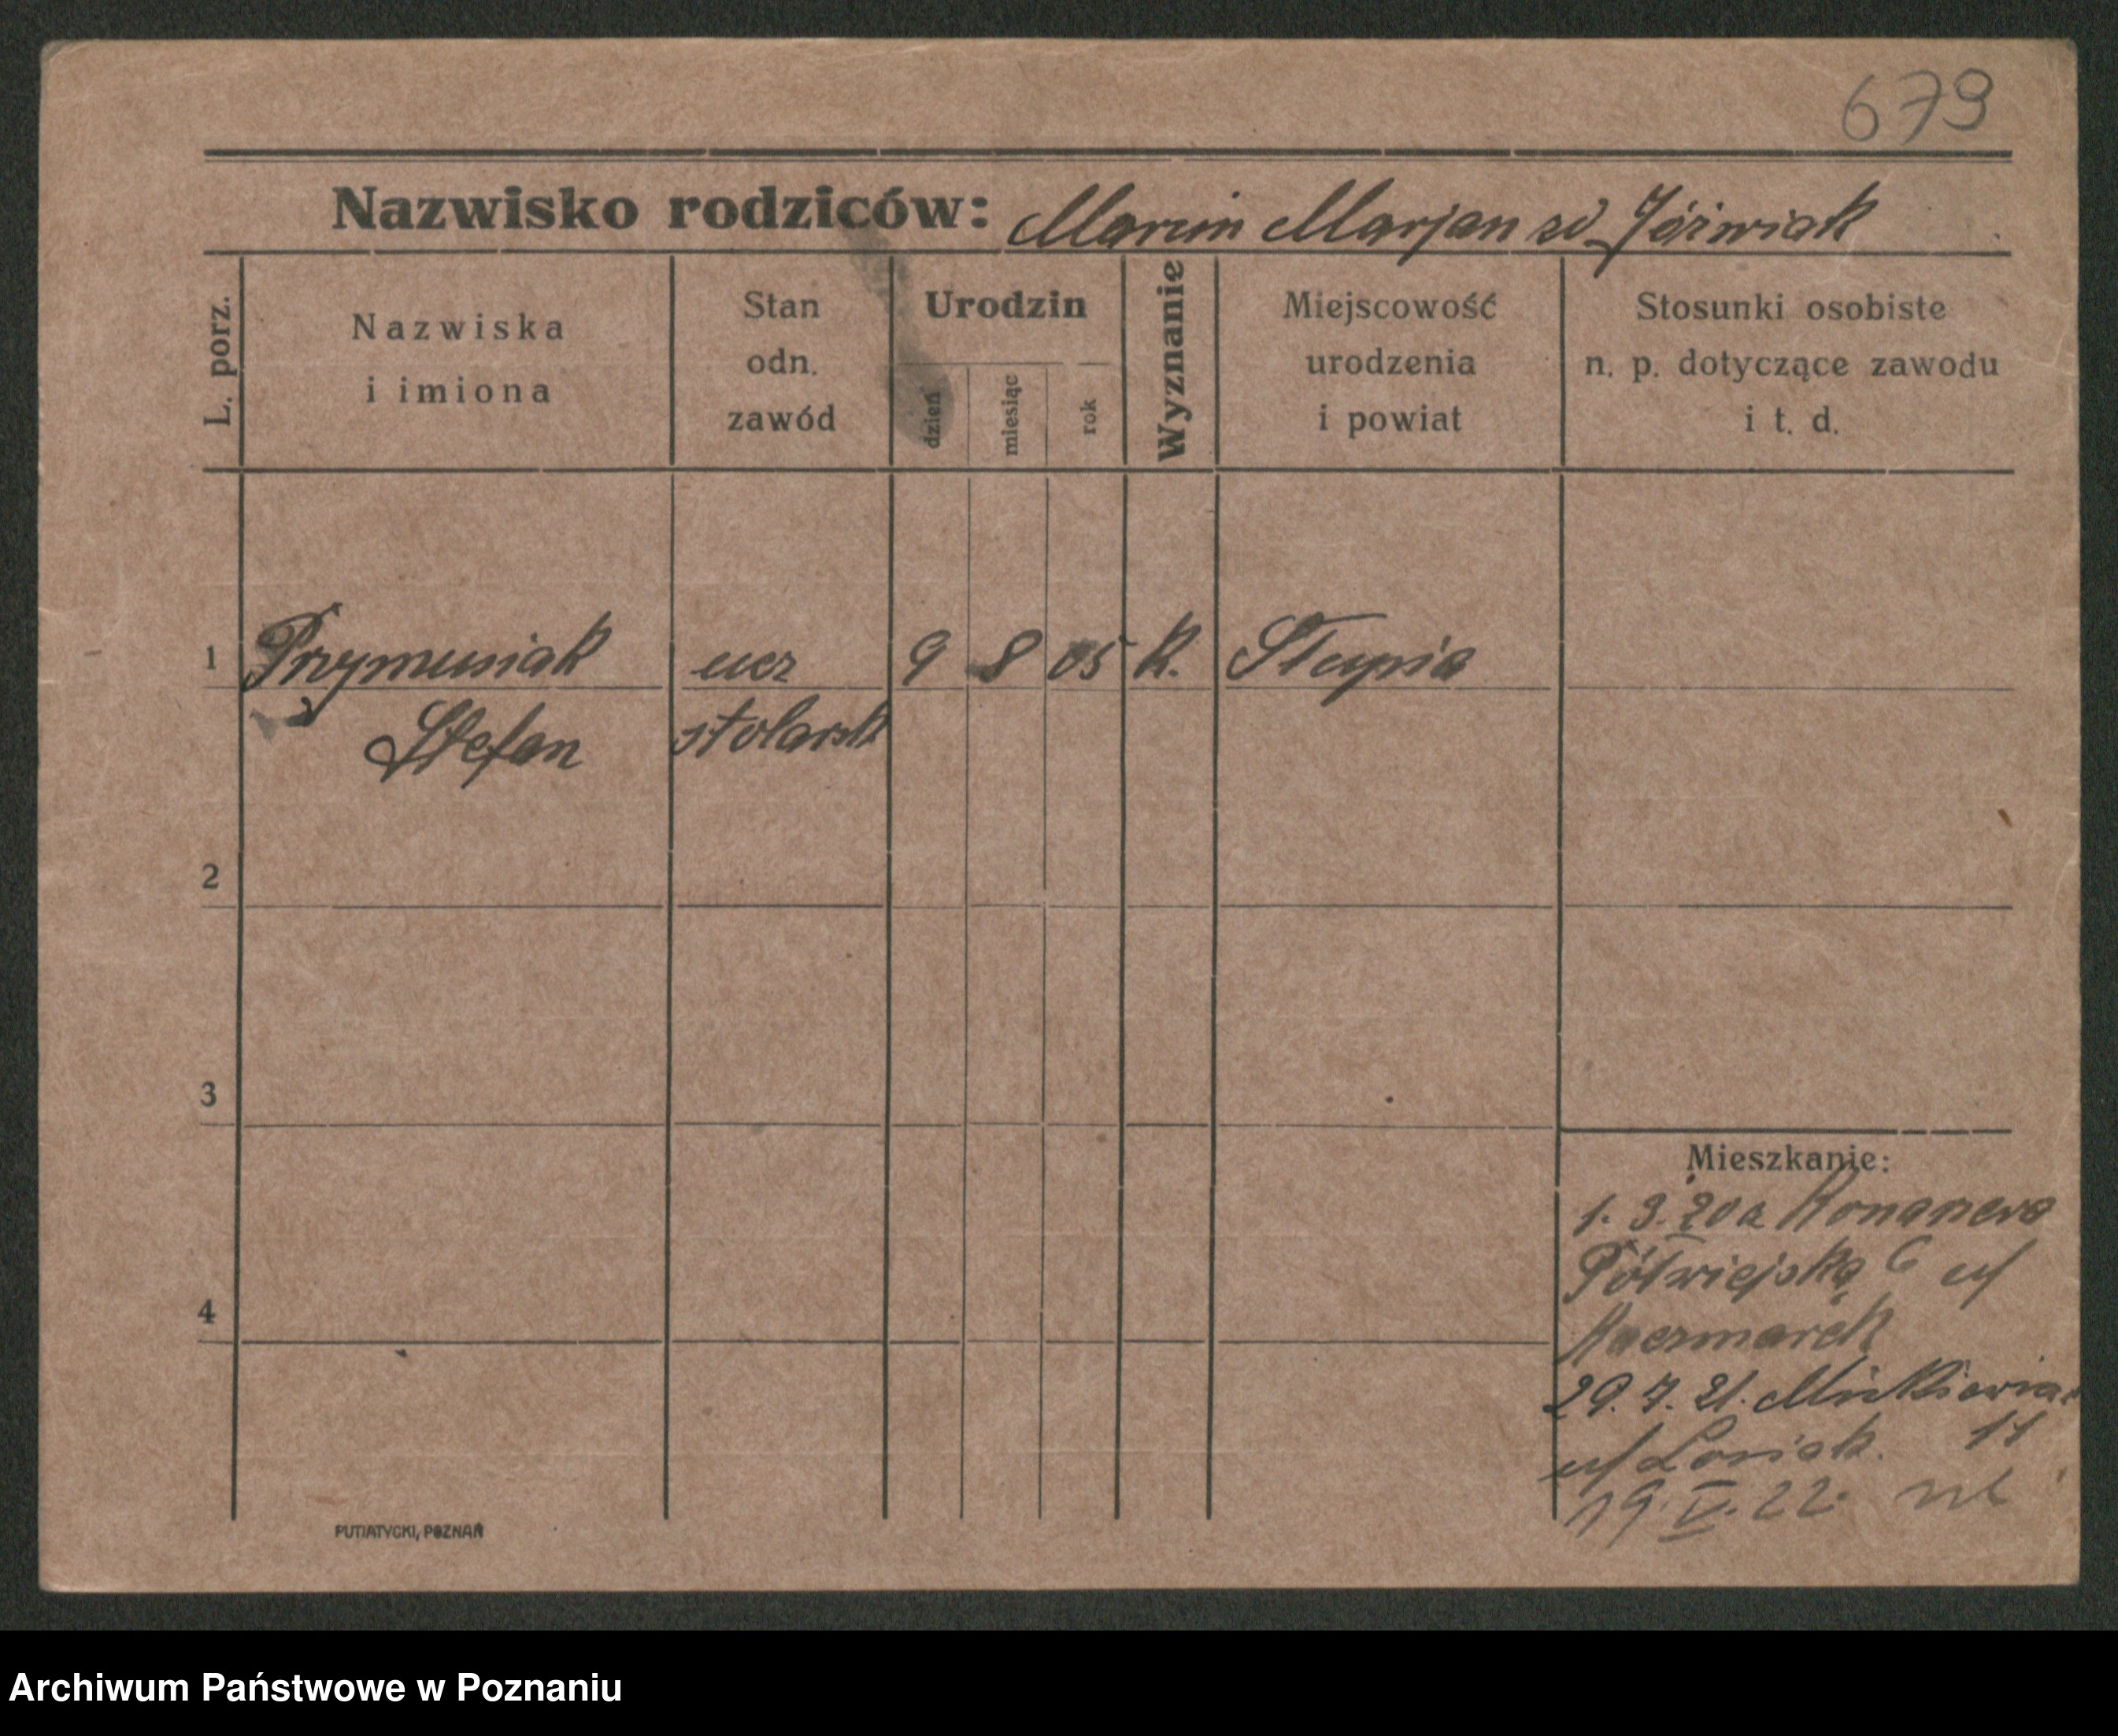 679
Nazwisko rodziców: Marcin Marjan zd Jóźwiak
L. porz.
Nazwiska
i imiona
Stan
odn.
zawód
Urodzin
dzień
miesiąc
rok
Wyznanie
Miejscowość
urodzenia
i powiat
Stosunki osobiste
n. p. dotyczące zawodu
i t. d.
1 Przymusiak ucz 9 8 05 K. Słupia
Stefan stolarsk
2
3
4
Mieszkanie:
1. 3. 20 z
Półwiejska 6 u/
Kaczmarek
29. 7. 21.
u/ 11
19. V. 22.
PUTIATYCKI, POZNAŃ
Archiwum Państwowe w Poznaniu